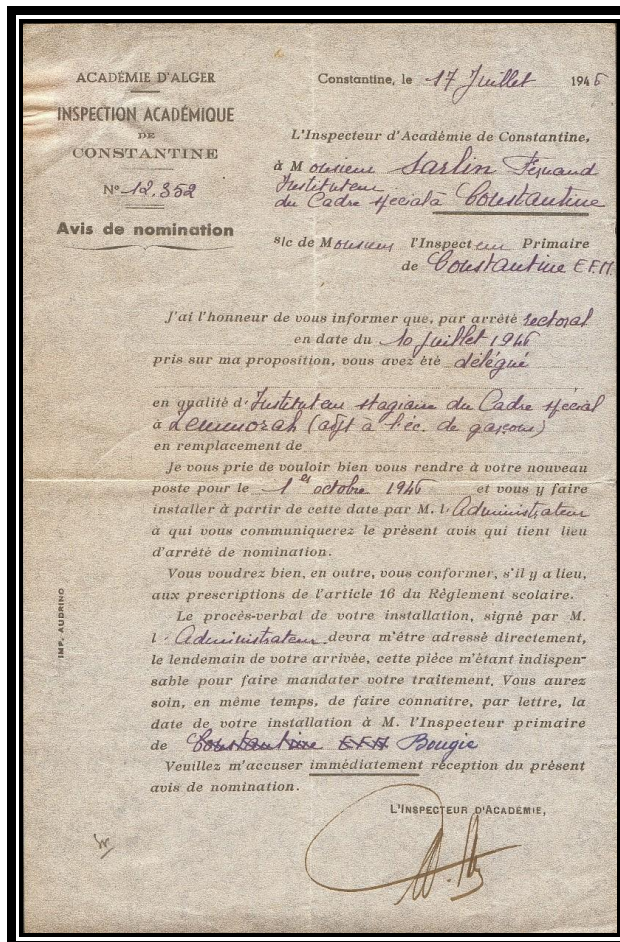 ACADÉMIE D'ALGER
INSPECTION ACADÉMIQUE
DE
CONSTANTINE
N° 12.352
Avis de nomination
Constantine, le 17 Juillet 1946
L'Inspecteur d'Académie de Constantine,
à Monsieur Sarlin Fernand
Instituteur
du Cadre spécial à Constantine
s/c de Monsieur l'Inspecteur Primaire
de Constantine E.F.M.
J'ai l'honneur de vous informer que, par arrêté rectoral
en date du 10 juillet 1946
pris sur ma proposition, vous avez été délégué
en qualité d'Instituteur stagiaire du Cadre spécial
à (adjt à l'éc. de garçons)
en remplacement de
Je vous prie de vouloir bien vous rendre à votre nouveau
poste pour le 1er octobre 1946 et vous y faire
installer à partir de cette date par M. l'Administrateur
à qui vous communiquerez le présent avis qui tient lieu
d'arrêté de nomination.
Vous voudrez bien, en outre, vous conformer, s'il y a lieu,
aux prescriptions de l'article 16 du Règlement scolaire.
Le procès-verbal de votre installation, signé par M.
l'Administrateur devra m'être adressé directement,
le lendemain de votre arrivée, cette pièce m'étant indispen-
sable pour faire mandater votre traitement. Vous aurez
soin, en même temps, de faire connaître, par lettre, la
date de votre installation à M. l'Inspecteur primaire
de Constantine EFM Bougie
Veuillez m'accuser immédiatement réception du présent
avis de nomination.
L'INSPECTEUR D'ACADÉMIE,
IMP. AUDRINO